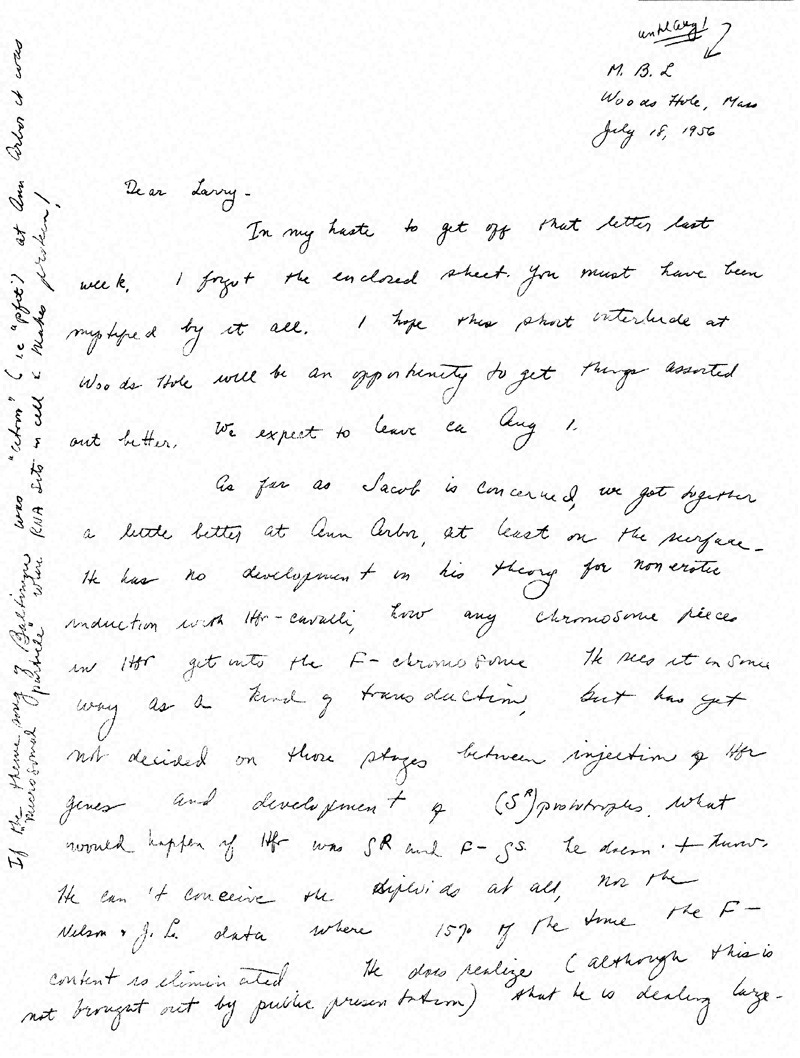 until Aug 1
M. B. L
Woods Hole, Mass
July 18, 1956
Dear Larry -
In my haste to get off that letter last
week, I forgot the enclosed sheet. You must have been
mystified by it all. I hope this short interlude at
Woods Hole will be an opportunity to get things assorted
out better. We expect to leave ca Aug 1.
As far as Jacob is concerned, we got together
a little better at Ann Arbor, at least on the surface -
He has no development in his theory for non erotic
induction with Hfr-cavalli, how any chromosome pieces
in Hfr get into the F- chromosome He sees it in some
way as a kind of transduction, but has yet
not decided on those stages between injection of Hfr
genes and development of (S^R) prototrophs. What
would happen if Hfr was SR and F- SS. he doesn't know.
He can't conceive the diploids at all, nor the
Nelson & J. L. data where 15% of the time the F-
content is eliminated He does realize (although this is
not brought out by public presentation) that he is dealing large-
If the theme song of Baltimore was "cistron" (ie "pfft") at Ann Arbor it was
"microsomal particle" where RNA sits in cell & makes protein!